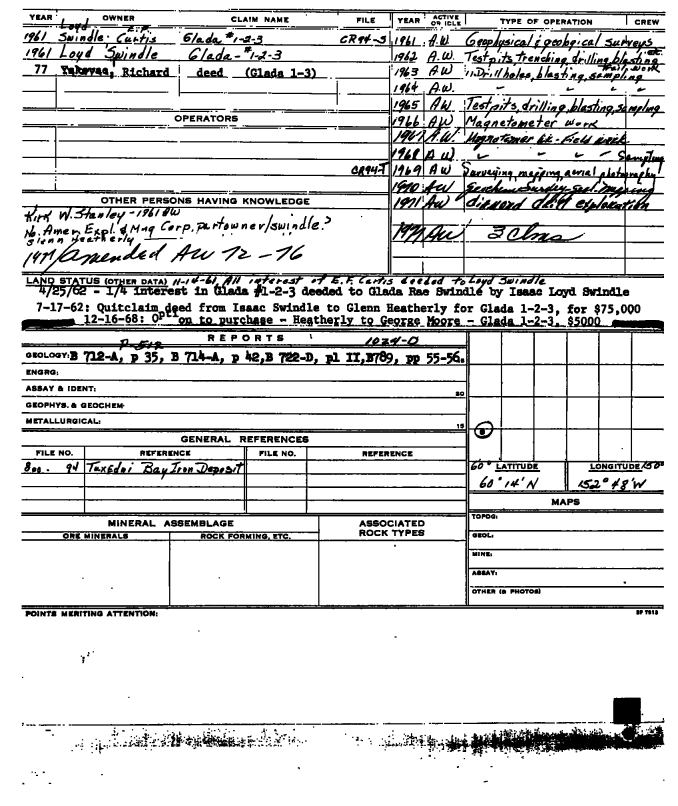 YEAR OWNER CLAIM NAME FILE YEAR ACTIVE OR IDLE TYPE OF OPERATION CREW
Loyd E.F.
1961 Swindle-Curtis Glada #1-2-3 CR94-5 1961 A.W. Geophysical & geological surveys
1961 Loyd Swindle Glada-#1-2-3 1962 A.W. Testpits, trenching, drilling, blasting etc.
77 Richard deed (Glada 1-3) 1963 A.W. " Drill holes, blasting, sampling
1964 A.W. " " "
1965 AW Testpits, drilling, blasting, sampling
OPERATORS 1966 AW Magnetometer work
1967 A.W. Magnetometer wk-Field work
1968 AW " " " Sampling
CR94-T 1969 AW Surveying, mapping, aerial photography
1970 AW Geochem Survey-Geol. Mapping
OTHER PERSONS HAVING KNOWLEDGE 1971 AW diamond drill exploration
Kirk W. Stanley-1961 AW
No. Amer. Expl. & Mng Corp, partowner/swindle?
Glenn Heatherly
1977 amended AW 72-76 1977 AW 3 Clms
LAND STATUS (OTHER DATA) 11-14-61, All interest of E.F. Curtis deeded to Loyd Swindle
4/25/62 - 1/4 interest in Glada #1-2-3 deeded to Glada Rae Swindle by Isaac Loyd Swindle
7-17-62: Quitclaim deed from Isaac Swindle to Glenn Heatherly for Glada 1-2-3, for $75,000
12-16-68: Option to purchase - Heatherly to George Moore - Glada 1-2-3, $5000
REPORTS
P-512 1024-D
GEOLOGY: B 712-A, p 35, B 714-A, p 42, B 722-D, pl II, B789, pp 55-56.
ENGRG:
ASSAY & IDENT: 20
GEOPHYS. & GEOCHEM
METALLURGICAL: 15
GENERAL REFERENCES
FILE NO. REFERENCE FILE NO. REFERENCE
800. 94 Tuxedni Bay Iron Deposit
60° LATITUDE LONGITUDE 150°
60° 14' N 152° 48' W
MAPS
MINERAL ASSEMBLAGE ASSOCIATED ROCK TYPES
ORE MINERALS ROCK FORMING, ETC.
TOPOG:
GEOL:
MINE:
ASSAY:
OTHER (& PHOTOS)
POINTS MERITING ATTENTION: